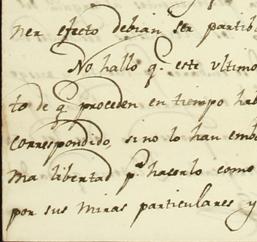 ner efecto debian ser partib
No hallo q.e este ultimo
to de q.e proceden en tiempo hab
correspondido, si no lo han emb
ma libertad p.a hacerlo como
por sus miras particulares y